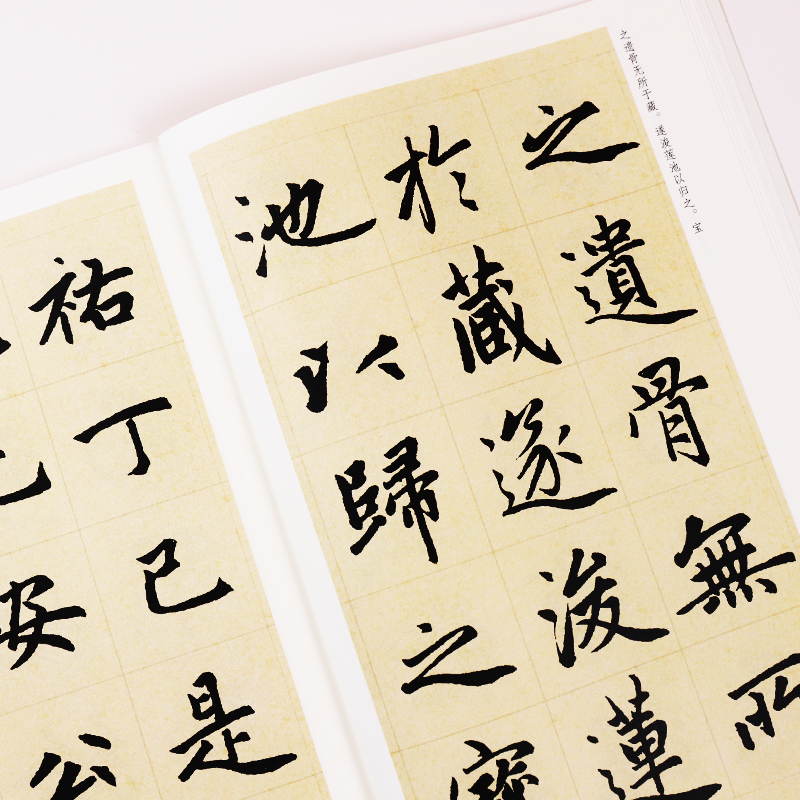 之遗骨无所于藏。遂浚莲池以归之。宝
之遺骨無所
於藏遂浚蓮
池以歸之寶
祐丁巳是
安公